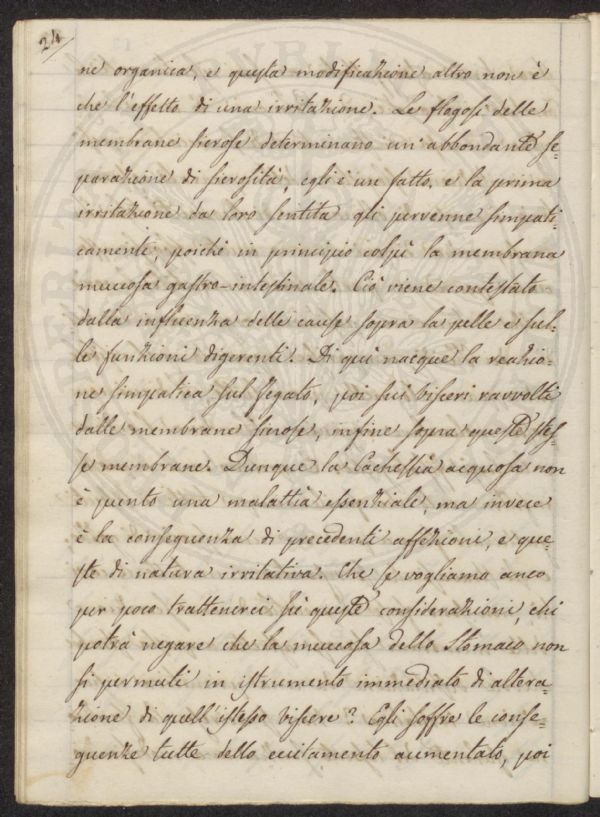 24/
ne organica, e questa modificazione altro non è
che l'effetto di una irritazione. Le flogosi delle
membrane sierose determinano un' abbondante se-
parazione di sierosità, egli è un fatto, e la prima
irritazione da loro sentita gli pervenne simpati-
camente, poichè in principio colpì la membrana
muccosa gastro-intestinale. Ciò viene contestato
dalla influenza delle cause sopra la pelle e sul-
le funzioni digerenti. Di quì nacque la reazio-
ne simpatica sul fegato, poi sui visceri ravvolti
dalle membrane sierose, infine sopra queste stes-
se membrane. Dunque la Cachessia acquosa non
è punto una malattia essenziale, ma invece
è la conseguenza di precedenti affezioni, e que-
ste di natura irritativa. Che se vogliamo anco
per poco trattenerci su queste considerazioni, chi
potrà negare che la muccosa dello Stomaco non
si permuti in istrumento immediato di altera-
zione di quell' istesso viscere? Egli soffre le conse-
guenze tutte dello eccitamento aumentato, poi